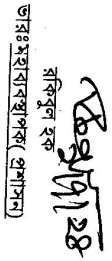 রকিবুল হক
ভারঃ মহাব্যবস্থাপক (প্রশাসন)